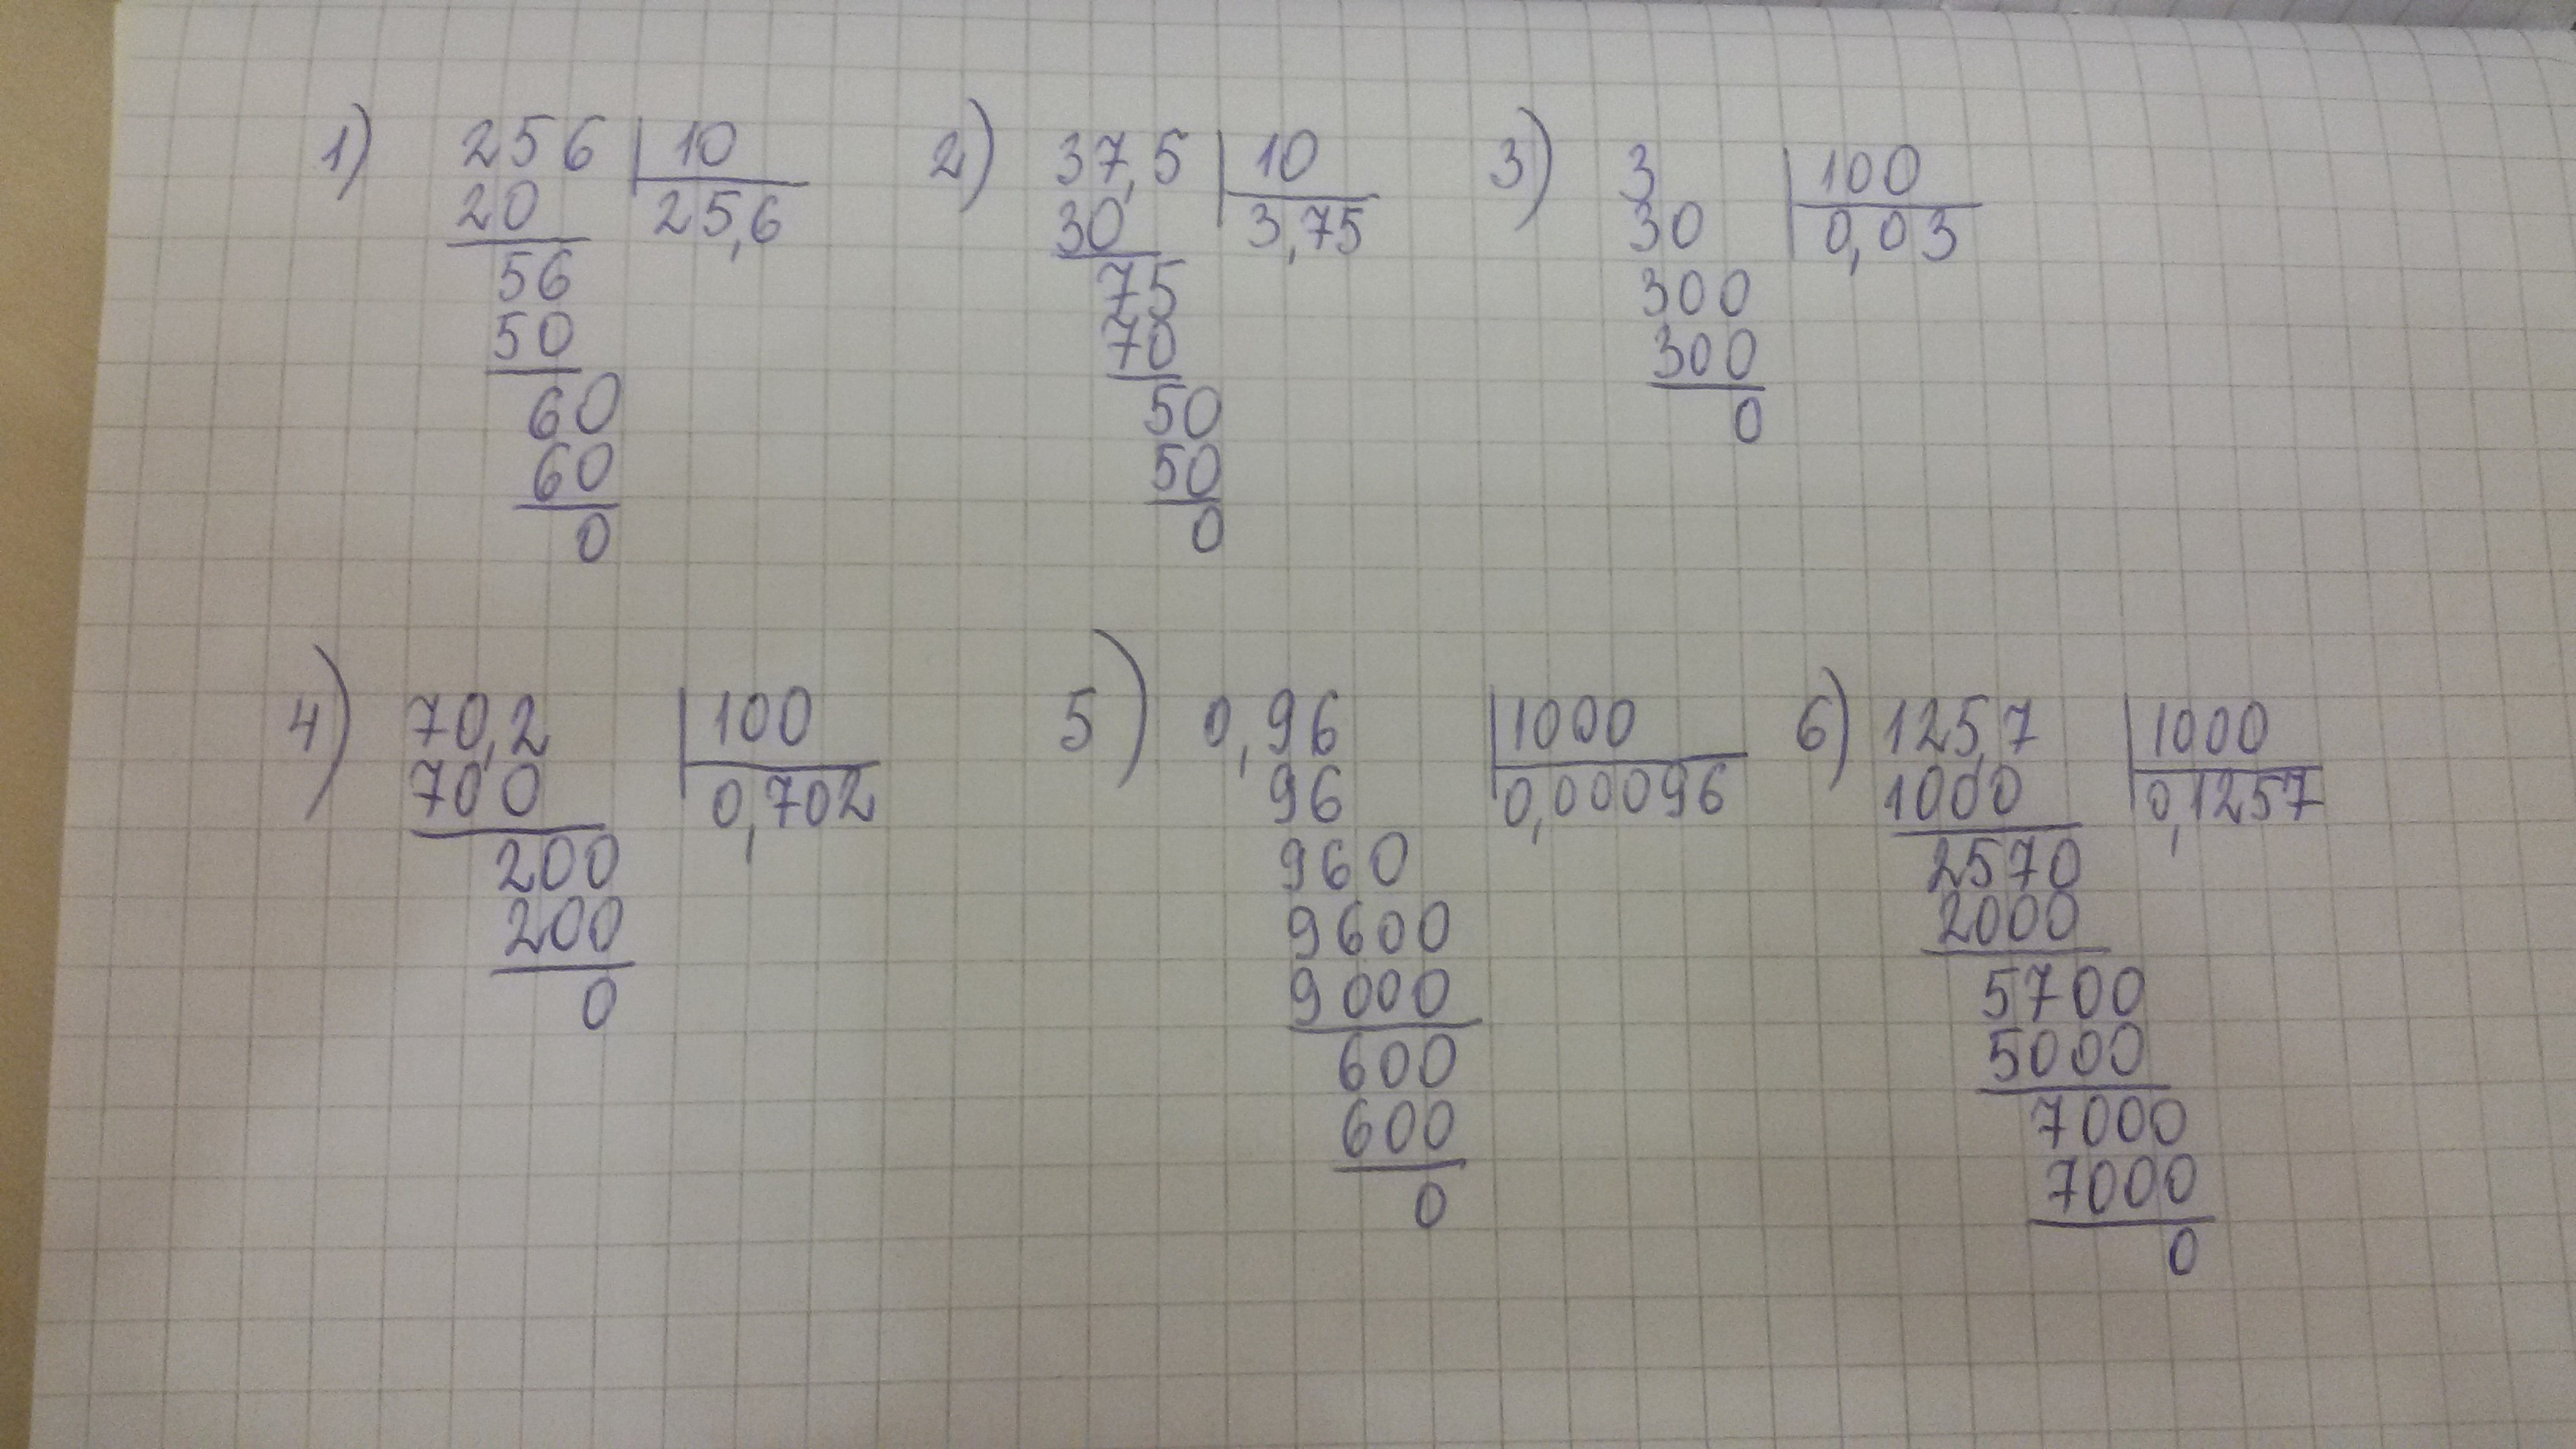 1) 256 | 10
20 25,6
56
50
60
60
0
2) 37,5 | 10
30 3,75
75
70
50
50
0
3) 3 | 100
30 0,03
300
300
0
4) 70,2 | 100
700 0,702
200
200
0
5) 0,96 | 1000
96 0,00096
960
9600
9000
600
600
0
6) 125,7 | 1000
1000 0,1257
2570
2000
5700
5000
7000
7000
0